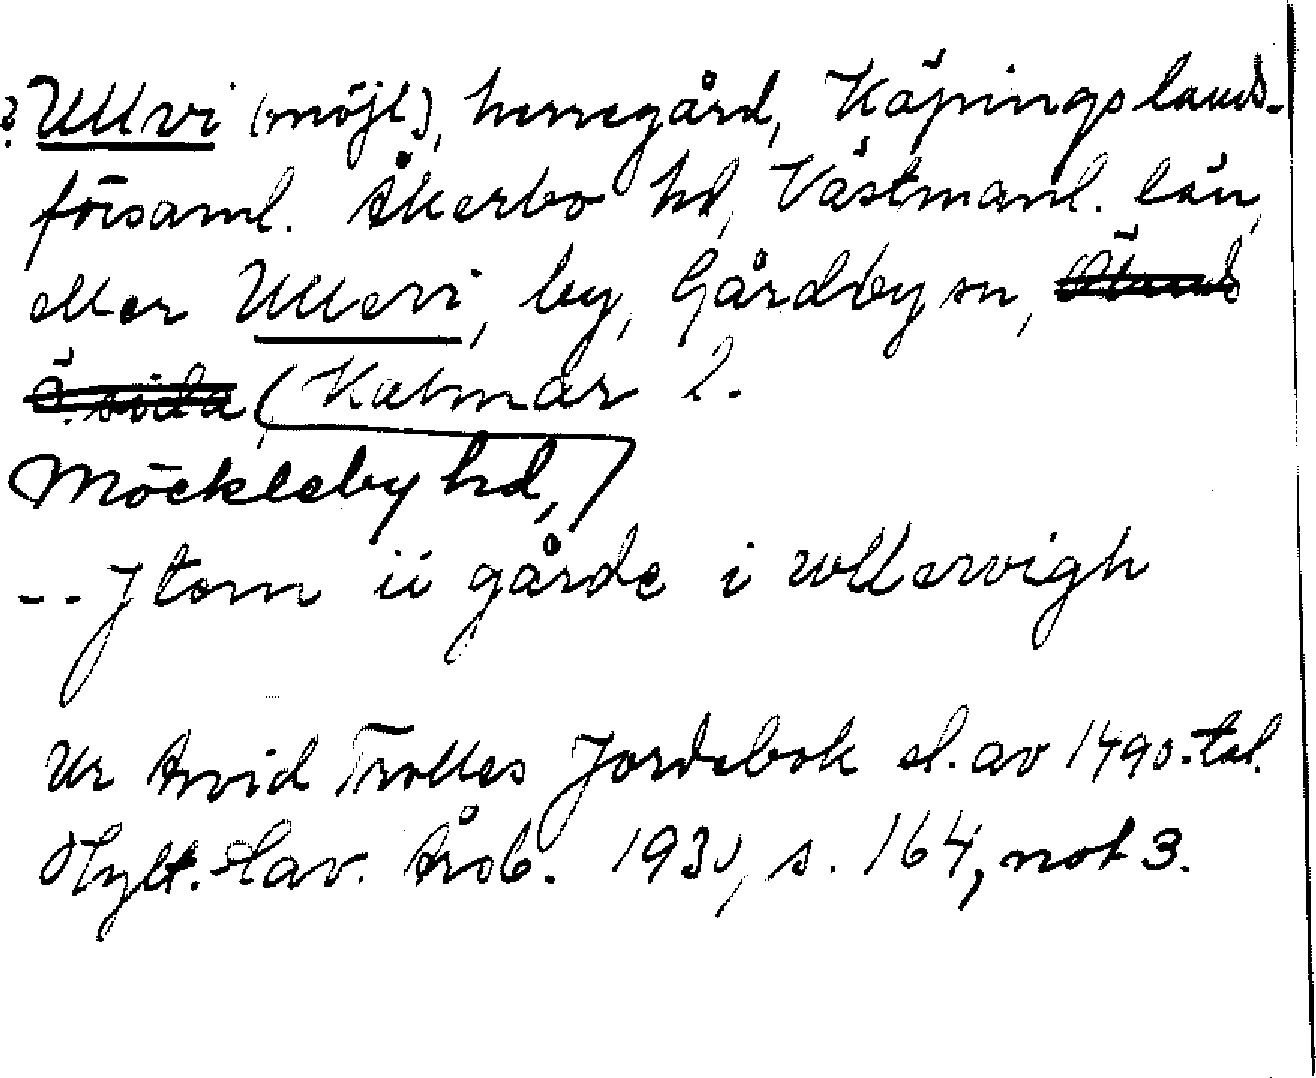 ? Ullvi (möjl.), herregård, Köpings lands-
församl. Åkerbo hd, Västmanl. län,
eller Ullevi, by, Gårdby sn,
Ö. sida, (Kalmar l.
Möckleby hd,)
-- Jtem ii gårde i wllervigh
Ur Arvid Trolles Jordebok sl. av 1490-tal.
Hylt. Cav. Årsb. 1930, s. 164, not 3.